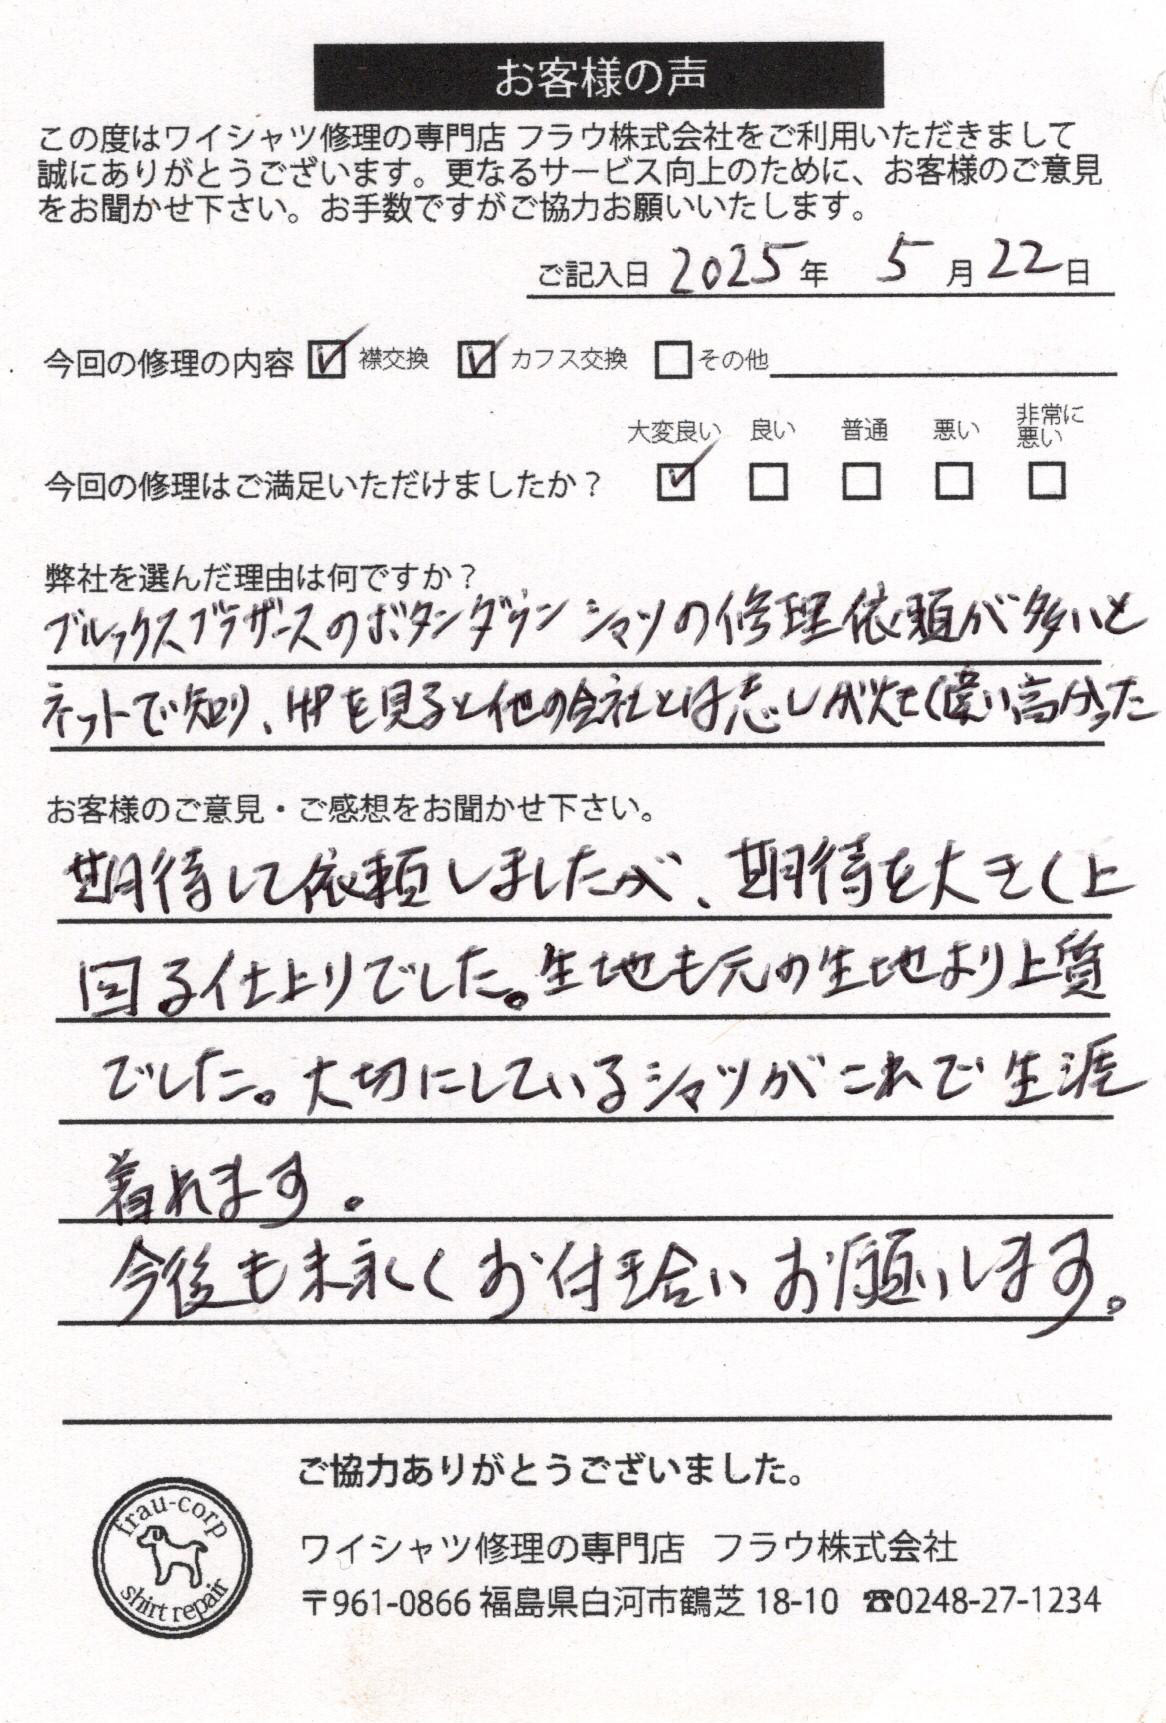 お客様の声
この度はワイシャツ修理の専門店 フラウ株式会社をご利用いただきまして
誠にありがとうございます。更なるサービス向上のために、お客様のご意見
をお聞かせ下さい。お手数ですがご協力お願いいたします。
ご記入日 2025年 5月22日
今回の修理の内容 ☑ 襟交換 ☑ カフス交換 □ その他
大変良い 良い 普通 悪い 非常に悪い
今回の修理はご満足いただけましたか? ☑ □ □ □ □
弊社を選んだ理由は何ですか?
ブルックスブラザースのボタンダウン シャツの修理依頼が多いと
ネットで知り、HPを見ると他の会社とは志しが高かった
お客様のご意見・ご感想をお聞かせ下さい。
期待して依頼しましたが、期待を大きく上
回る仕上りでした。生地も元の生地より上質
でした。大切にしているシャツがこれで生涯
着れます。
今後も末永くお付き合いお願いします。
ご協力ありがとうございました。
frau-corp
shirt repair
ワイシャツ修理の専門店 フラウ株式会社
〒961-0866 福島県白河市鶴芝 18-10 ☎0248-27-1234